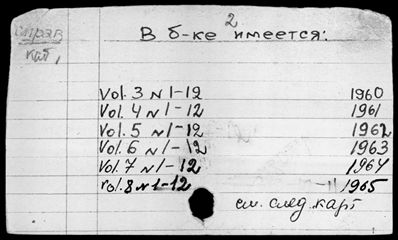 справ
каб,
2
В б-ке имеется:
Vol. 3 № 1-12 1960
Vol. 4 № 1-12 1961
Vol. 5 № 1-12 1962
Vol. 6 № 1-12 1963
Vol. 7 № 1-12 1964
Vol. 8 № 1-12 -11- 1965
см. след карт